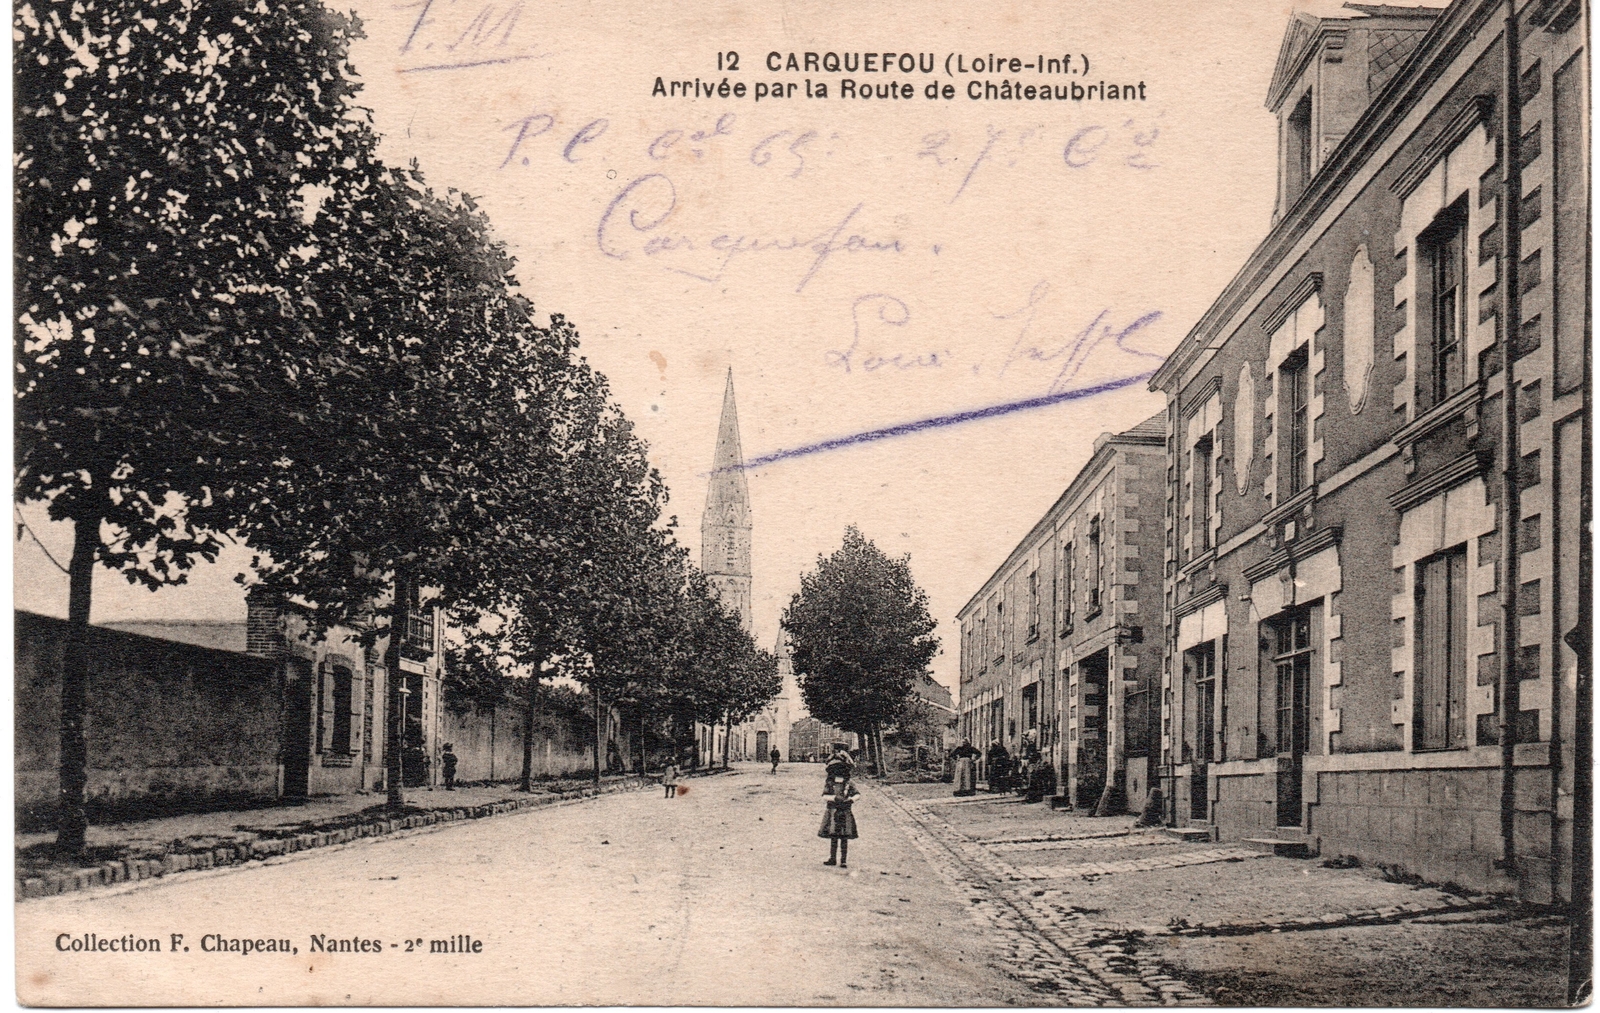 F.M.
12 CARQUEFOU (Loire-Inf.)
Arrivée par la Route de Châteaubriant
P.C. 65e 27e Cie
Carquefou.
Loire Inf
Collection F. Chapeau, Nantes - 2e mille